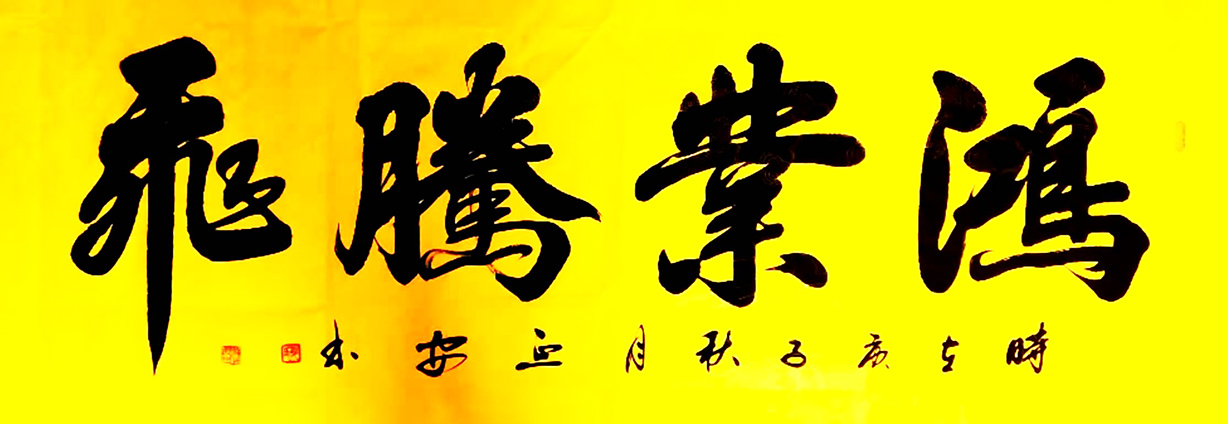 鴻業騰飛
時在庚子秋月正安书